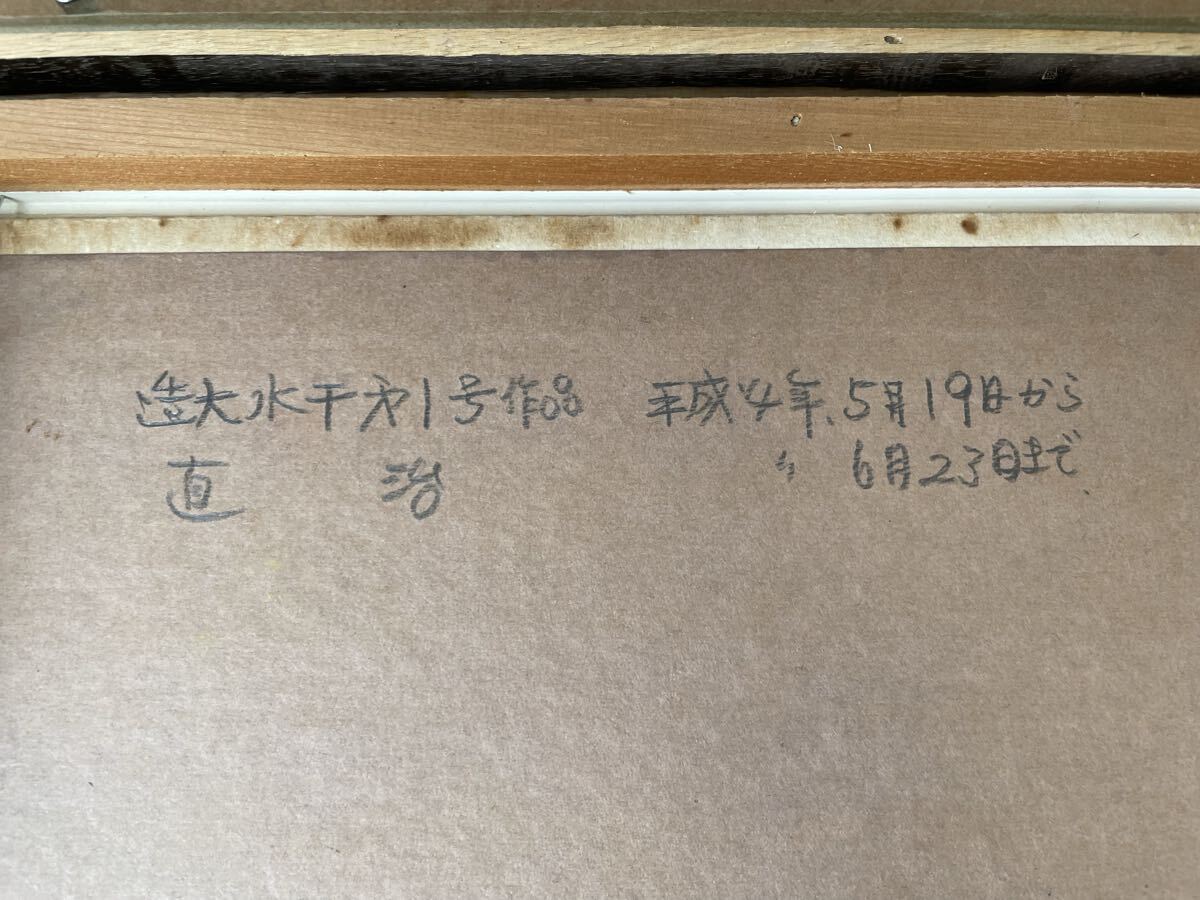 造大水干才1号作品 平成4年、5月19日から
直 治 〃 6月23日まで